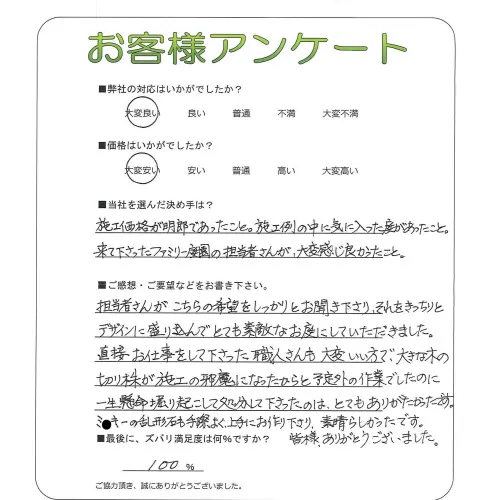 お客様アンケート
■弊社の対応はいかがでしたか?
大変良い 良い 普通 不満 大変不満
■価格はいかがでしたか?
大変安い 安い 普通 高い 大変高い
■当社を選んだ決め手は?
施工価格が明朗であったこと。施工例の中に気に入った庭があったこと。
来て下さったファミリー庭園の担当者さんが、大変感じ良かったこと。
■ご感想・ご要望などをお書き下さい。
担当者さんが こちらの希望をしっかりとお聞き下さり、それをきっちりと
デザインに盛り込んでとても素敵なお庭にしていただきました。
直接お仕事をして下さった職人さんも 大変いい方で、大きな木の
切り株が施工の邪魔になったからと予定外の作業でしたのに
一生懸命掘り起こして処分して下さったのは、とてもありがたかった
ミッキーの乱形石も手際よく上手にお作り下さり、素晴らしかったです。
■最後に、ズバリ満足度は何%ですか? 皆様、ありがとうございました。
100 %
ご協力頂き、誠にありがとうございました。